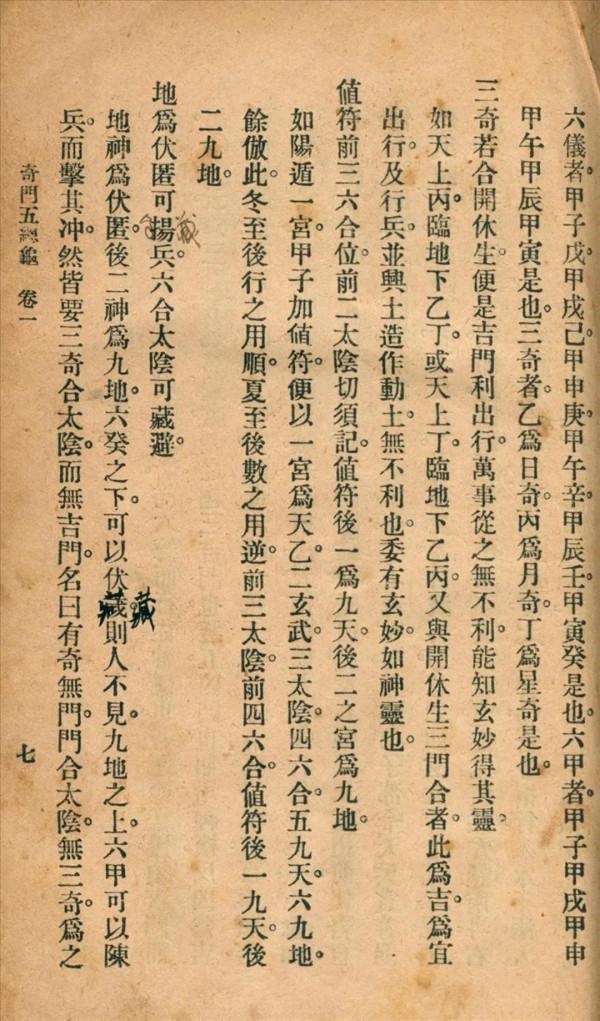 六儀者。甲子戊。甲戌己。甲申庚。甲午辛。甲辰壬。甲寅癸是也。六甲者。甲子甲戌甲申
甲午甲辰甲寅是也。三奇者。乙爲日奇。丙爲月奇。丁爲星奇是也。
三奇若合開休生。便是吉門利出行。萬事從之無不利。能知玄妙得其靈。
如天上丙。臨地下乙丁。或天上丁。臨地下乙丙。又與開休生三門合者。此爲吉。爲宜
出行。及行兵。並興土造作動土。無不利也。委有玄妙。如神靈也。
値符前三六合位。前二太陰切須記。値符後一爲九天。後二之宮爲九地。
如陽遁一宮。甲子加値符。便以一宮爲天乙。二玄武。三太陰。四六合。五九天。六九地。
餘倣此。冬至後行之用順。夏至後數之用逆。前三太陰。前四六合。値符後一九天。後
二九地。
地爲伏匿可揚兵。六合太陰可藏避。
藏
地神爲伏匿。後二神爲九地。六癸之下。可以伏藏。則人不見。九地之上。六甲可以陳
藏
兵。而擊其冲。然皆要三奇合太陰。而無吉門。名曰有奇無門。門合太陰。無三奇。爲之
奇門五總龜 卷一
七